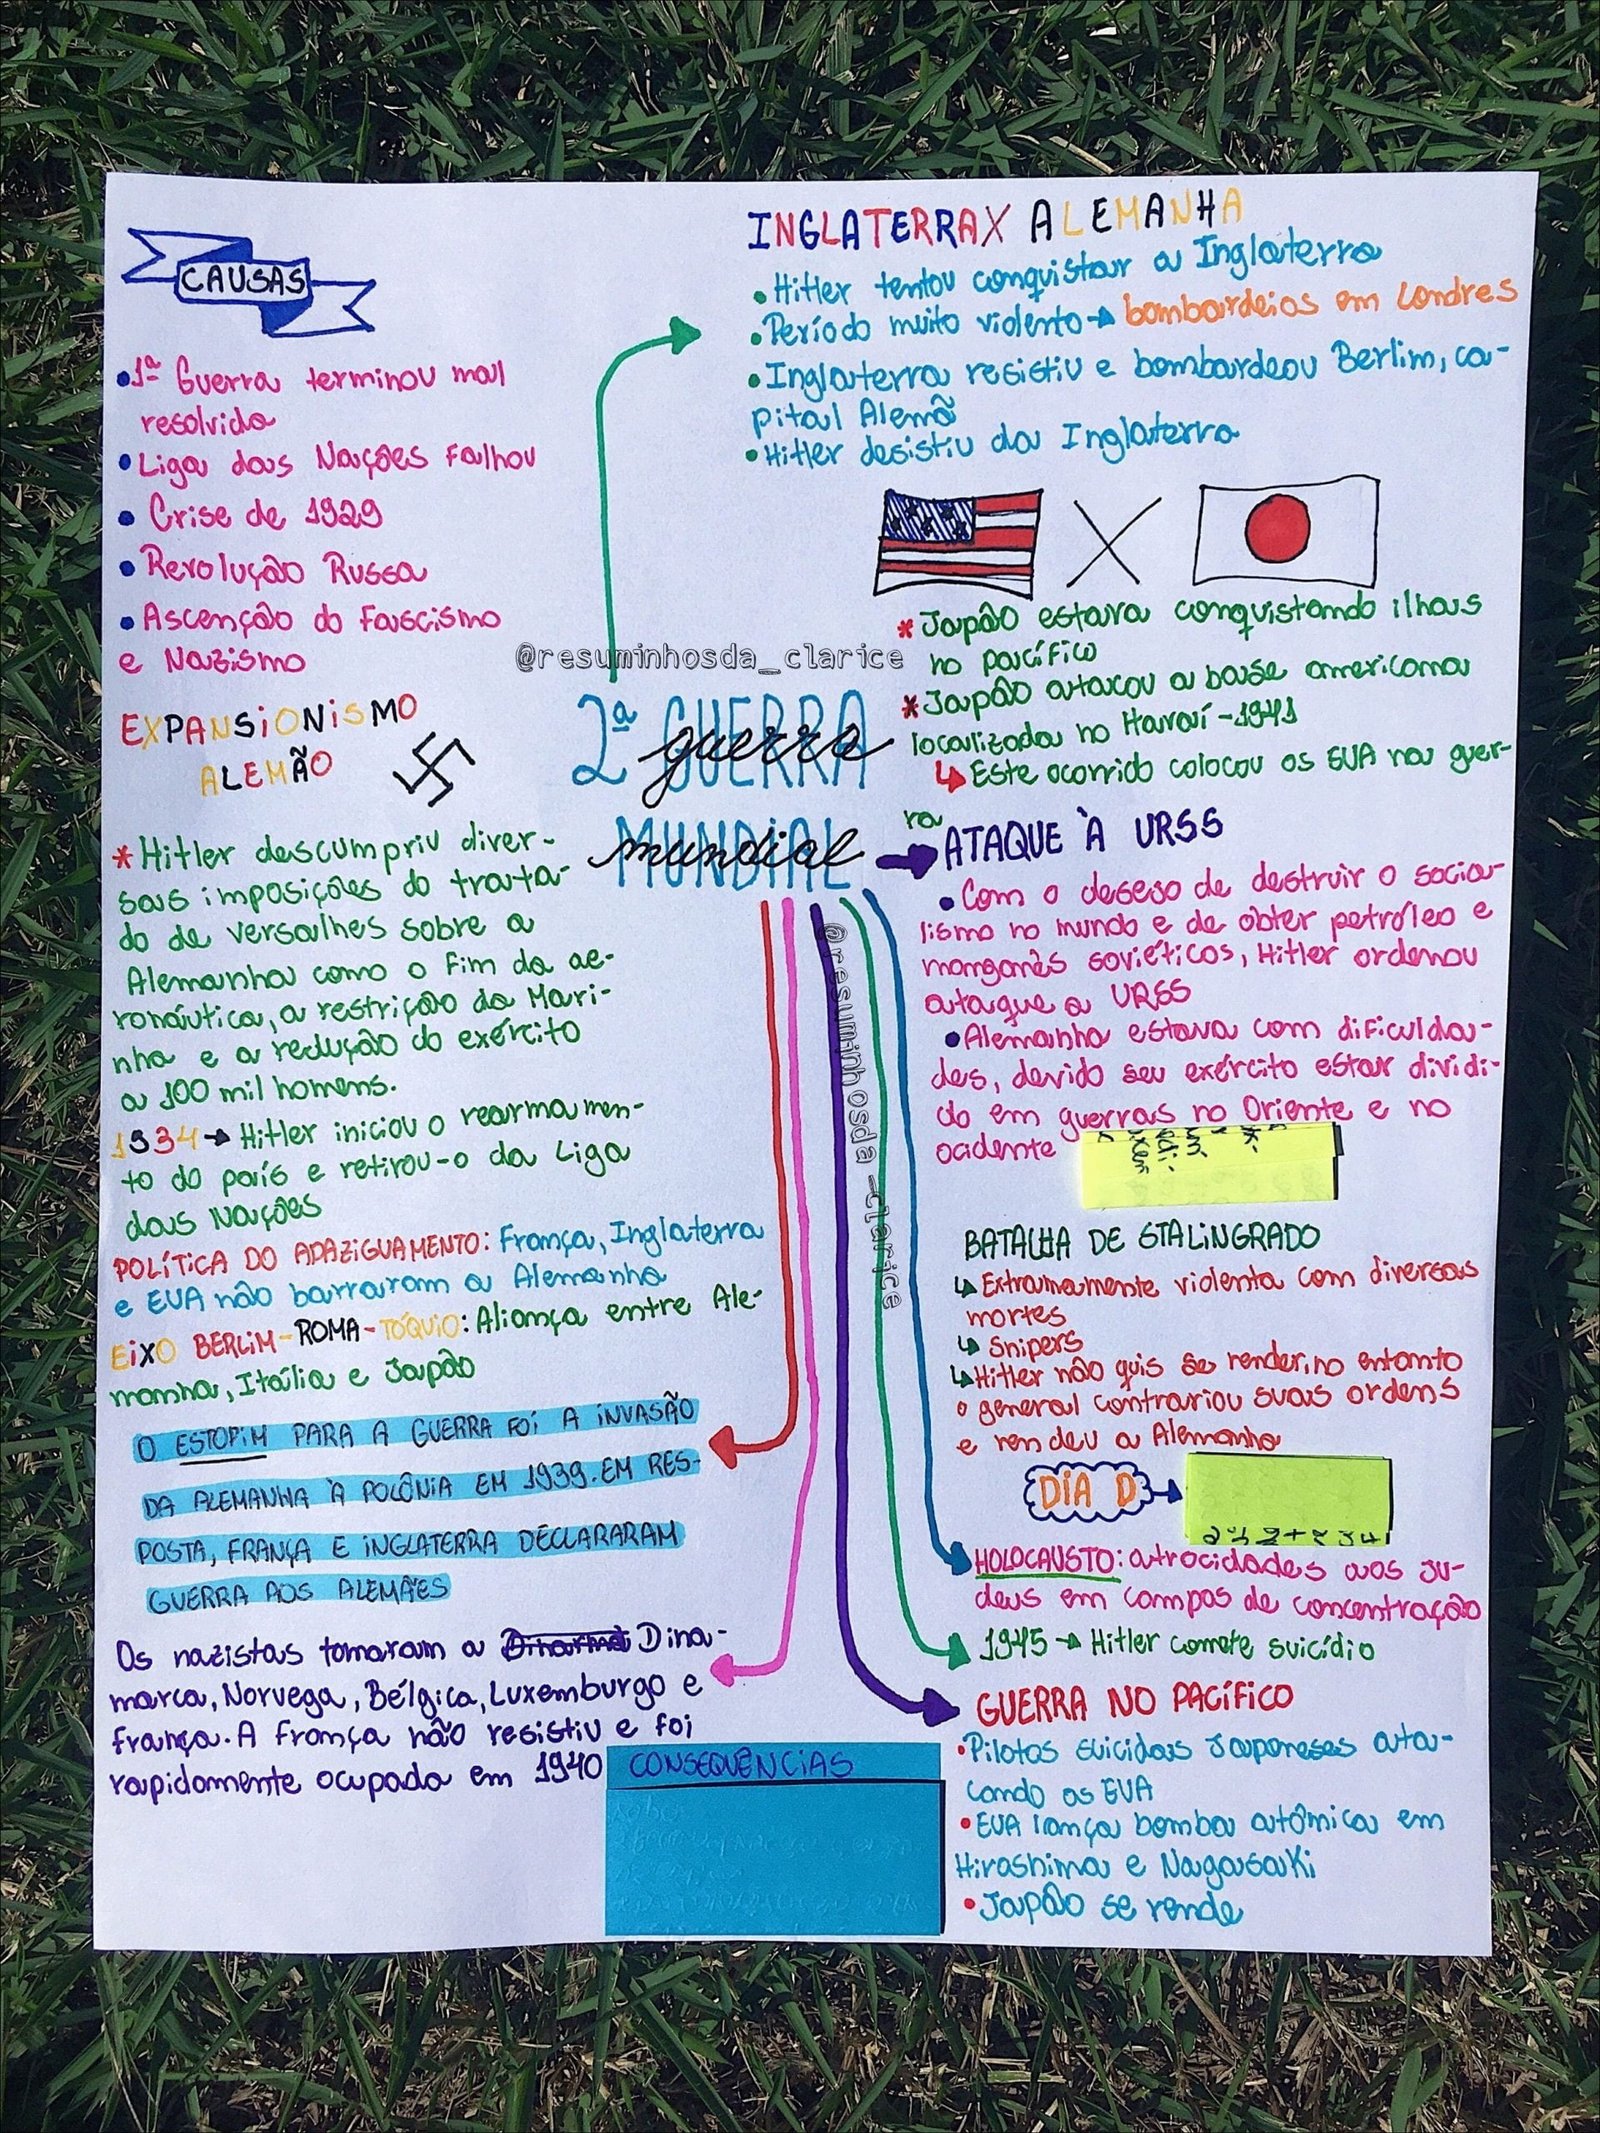 CAUSAS
•1ª Guerra terminou mal
resolvida
•Liga das Nações falhou
• Crise de 1929
• Revolução Russa
• Ascenção do fascismo
e Nazismo
EXPANSIONISMO
ALEMÃO
* Hitler descumpriu diver-
sas imposições do trata-
do de versalhes sobre a
Alemanha como o fim da ae-
ronáutica, a restrição da Mari-
nha e a redução do exército
a 100 mil homens.
1934→ Hitler iniciou o rearmamen-
to do país e retirou-o da Liga
das Nações
POLÍTICA DO APAZIGUAMENTO: França, Inglaterra
e EUA não barraram a Alemanha
EIXO BERLIM-ROMA-TÓQUIO: Aliança entre Ale-
manha, Itália e Japão
O ESTOPIM PARA A GUERRA FOI A INVASÃO
DA ALEMANHA À POLÔNIA EM 1939. EM RES-
POSTA, FRANÇA E INGLATERRA DECLARARAM
GUERRA AOS ALEMÃES
Os nazistas tomaram a Dina-
marca, Norvega, Bélgica, Luxemburgo e
frança. A frança não resistiu e foi
rapidamente ocupada em 1940
CONSEQUÊNCIAS
@resuminhosda_clarice
2ª GUERRA
guerra
MUNDIAL
mundial
@resuminhosda_clarice
INGLATERRA X ALEMANHA
• Hitler tentou conquistar a Inglaterra
• Período muito violento→ bombardeios em Londres
• Inglaterra resistiu e bombardeou Berlim, ca-
pital Alemã
• Hitler desistiu da Inglaterra
* Japão estava conquistando ilhas
no pacífico
* Japão atacou a base americana
localizada no Havaí-1941
↳ Este ocorrido colocou os EUA na guer-
ra
ATAQUE À URSS
• Com o desejo de destruir o socia-
lismo no mundo e de obter petróleo e
manganês soviéticos, Hitler ordenou
ataque a URSS
• Alemanha estava com dificulda-
des, devido seu exército estar dividi-
do em guerras no Oriente e no
ocidente
BATALHA DE STALINGRADO
↳ Extramamente violenta com diversas
mortes
↳ Snipers
↳ Hitler não quis se render, no entanto
o general contrariou suas ordens
e rendeu a Alemanha
DIA D →
HOLOCAUSTO: atrocidades aos ju-
deus em campos de concentração
1945 → Hitler comete suicídio
GUERRA NO PACÍFICO
• Pilotos suicidas Japoneses ata-
cando os EUA
• EUA lança bomba atômica em
Hiroshima e Nagasaki
• Japão se rende